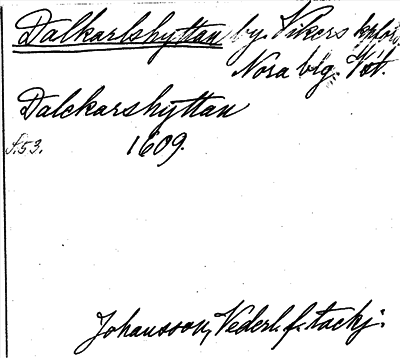 Dalkarlshyttan by. Vikers kplfs.
Nora blg. Vstl.
Dalckarshyttan
s.53. 1609.
Johansson, Vederl. f. tackj.